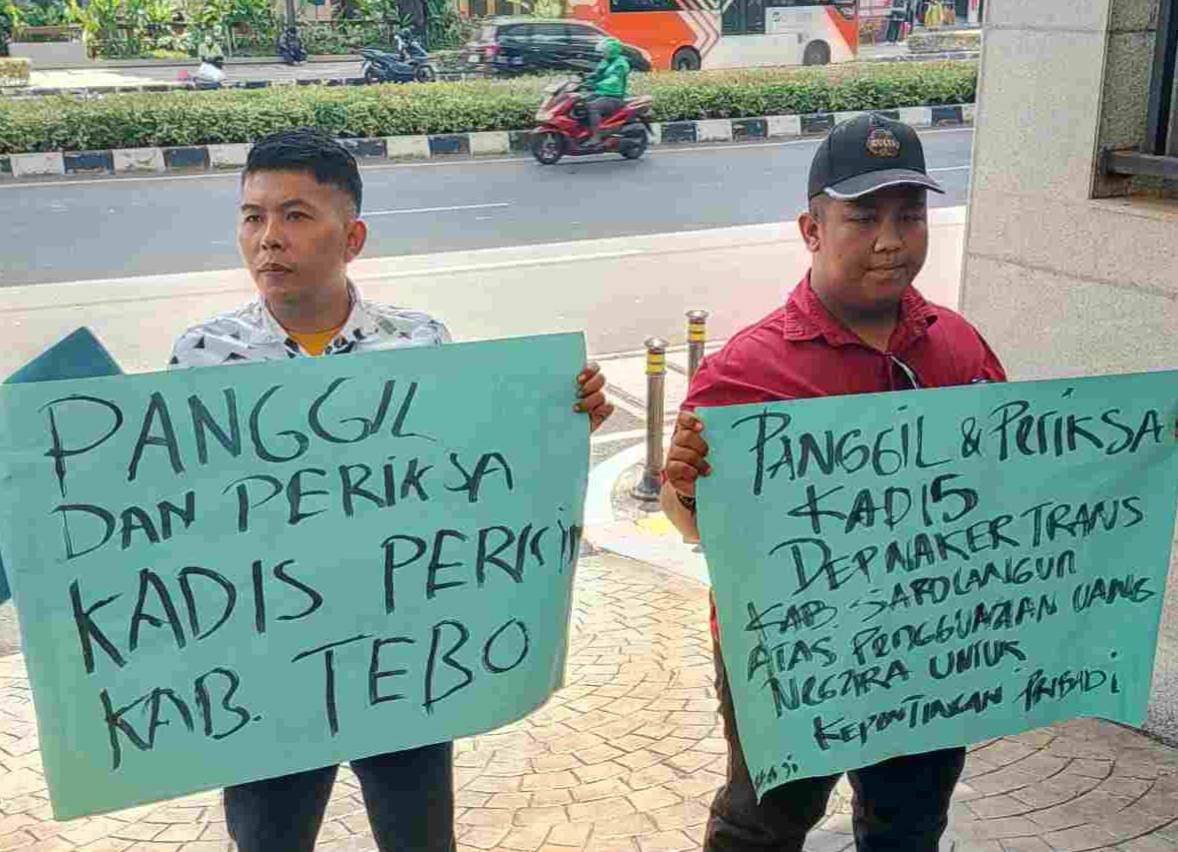 PANGGIL
DAN PERIKSA
KADIS PERKIM
KAB. TEBO
PANGGIL & PERIKSA
KADIS
DEPNAKER TRANS
KAB. SAROLANGUN
ATAS PENGGUNAAN UANG
NEGARA UNTUK
KEPENTINGAN PRIBADI